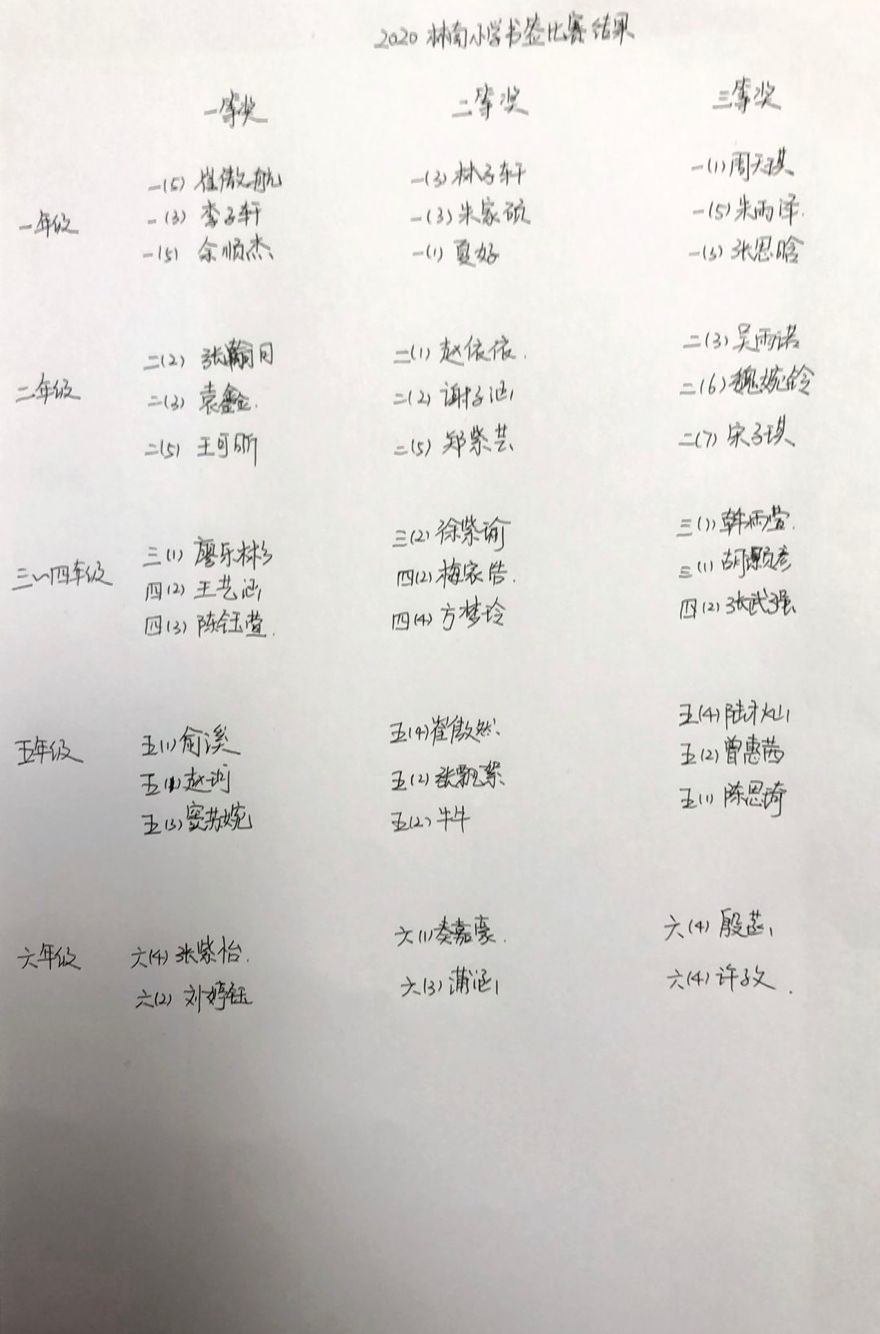 2020 林南小学书签比赛结果
一等奖 二等奖 三等奖
一(5) 崔傲航 一(3) 林子轩 一(1) 周天琪
一年级 一(3) 李子轩 一(3) 朱家硕 一(5) 朱雨泽.
一(5) 余顺杰 一(1) 夏好 一(3) 张恩晗
二(2) 张翰月 二(1) 赵依依. 二(3) 吴雨诺
二年级 二(3) 袁鑫. 二(2) 谢子涵 二(6) 魏婉铃
二(5) 王可昕 二(5) 郑紫芸 二(7) 宋子琪
三(1) 廖乐彬 三(2) 徐紫瑜 三(1) 韩雨萱.
三~四年级 四(2) 王艺涵 四(2) 梅家浩. 三(1) 胡颢彦
四(3) 陈钰萱. 四(4) 方梦玲 四(2) 张武强
五(1) 俞溪 五(4) 崔傲然 五(4) 陆
五年级 五(1) 赵 五(2) 张飘絮 五(2) 曾惠茜
五(3) 窦苏婉 五(2) 牛牛 五(1) 陈思琦
六年级 六(4) 张紫怡. 六(1) 娄嘉豪. 六(4) 殷
六(2) 刘婷钰 六(3) 蒲涵 六(4) 许孜.